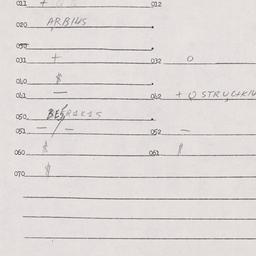 011 + 012
020 ARBIUS
030
031 + 032 0
040 $
041 — 042 + O STRUCKIN
050
051 — — 052 —
060 $ 061 $
070 $